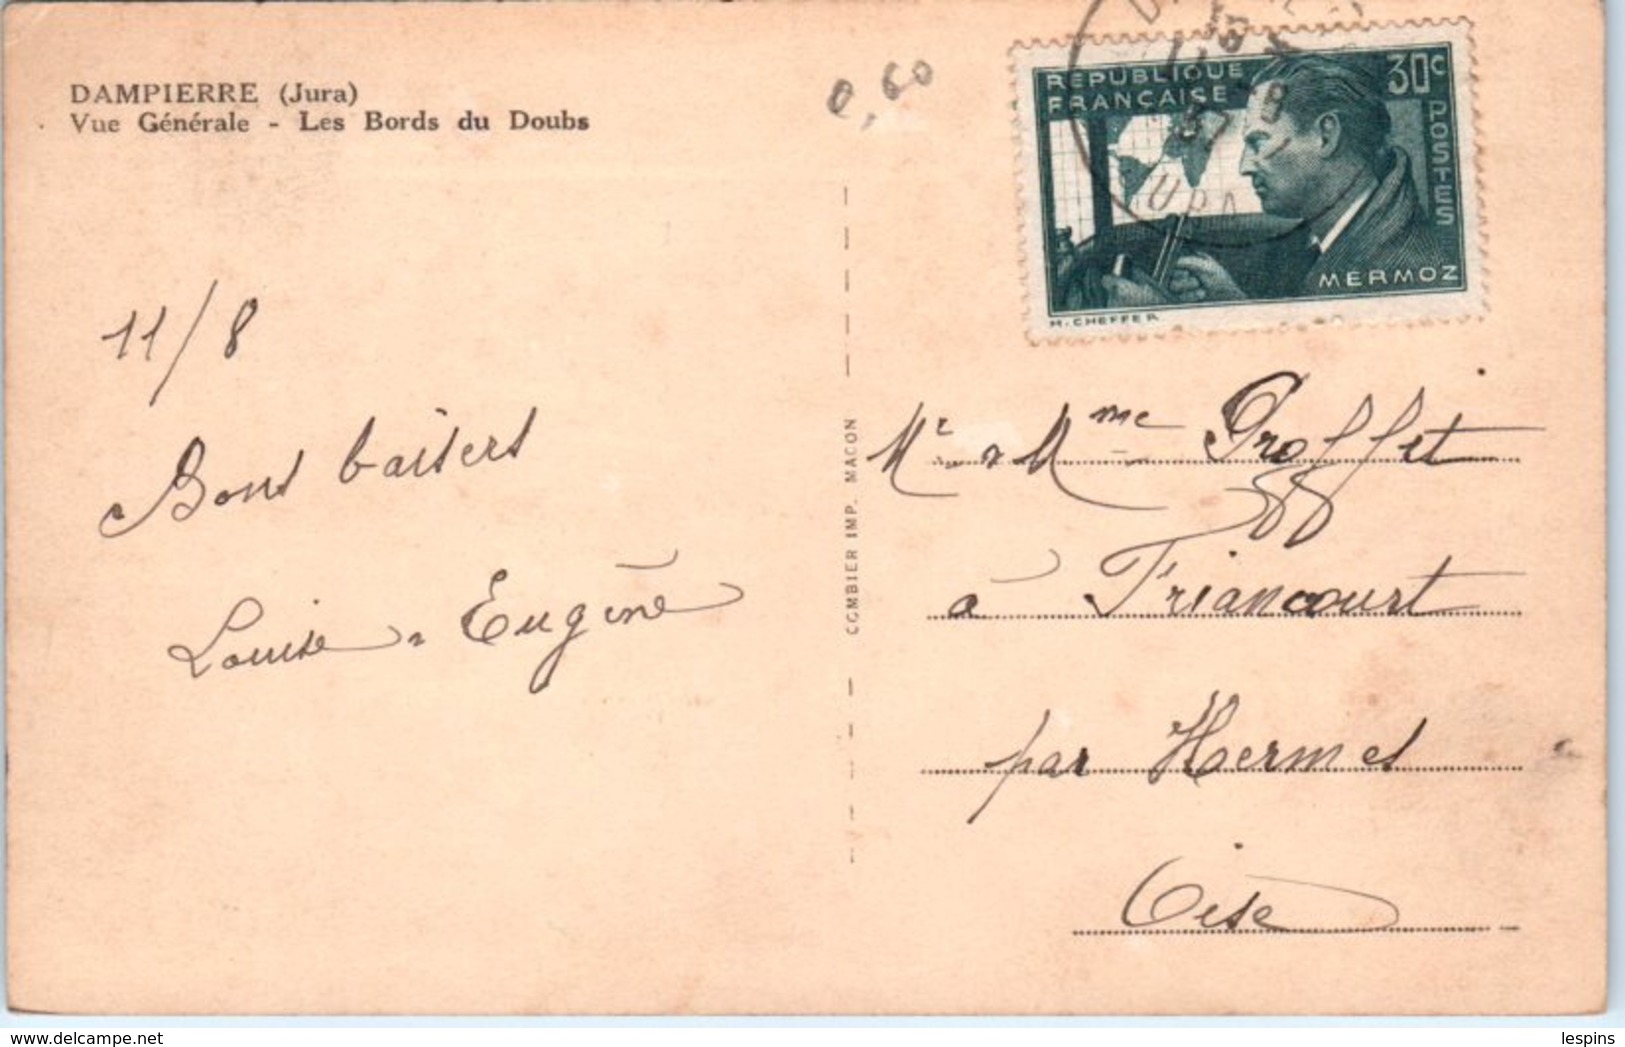 DAMPIERRE (Jura)
Vue Générale - Les Bords du Doubs
0,60
RÉPUBLIQUE
FRANÇAISE
30c
POSTES
MERMOZ
H. CHEFFER
37
URA
11/8
Bons baisers
Louise & Eugène
COMBIER IMP. MACON
Mr & Mme Proffit
à Friancourt
par Hermes
Oise
lespins
https://www.delcampe.net